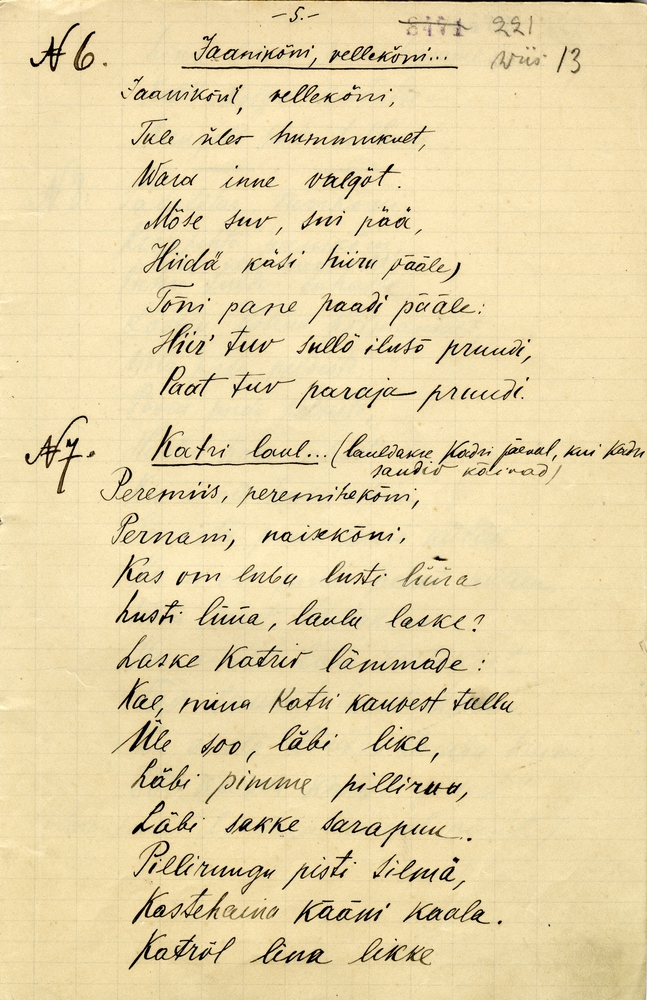 -5.-
8471 221
N 6. Jaaniköni, velleköni...
wiis 13
Jaaniköni, velleköni,
Tule üles hummukult,
Wara inne valgõt.
Mõse suv, sui pää,
Hiidä käsi hiiru pääle,
Tõni pane paadi pääle:
Hiir' tuv sullõ ilusõ pruudi,
Paat tuv paraja pruudi.
N 7. Katri laul... (lauldakse Kadri päeval, kui Kadri
sandid käivad)
Peremiis, peremiheköni,
Pernani, naiseköni,
Kas om luba lusti lüüa
Lusti lüüa, laulu laske?
Laske Katrid lämmade:
Kae, mina Katri kauvest tullu
Üle soo, läbi like,
Läbi pimme pilliruu,
Läbi sakke sarapuu.
Pilliruugu pisti silmä,
Kastehaina kääni kaala.
Katröl lina likke